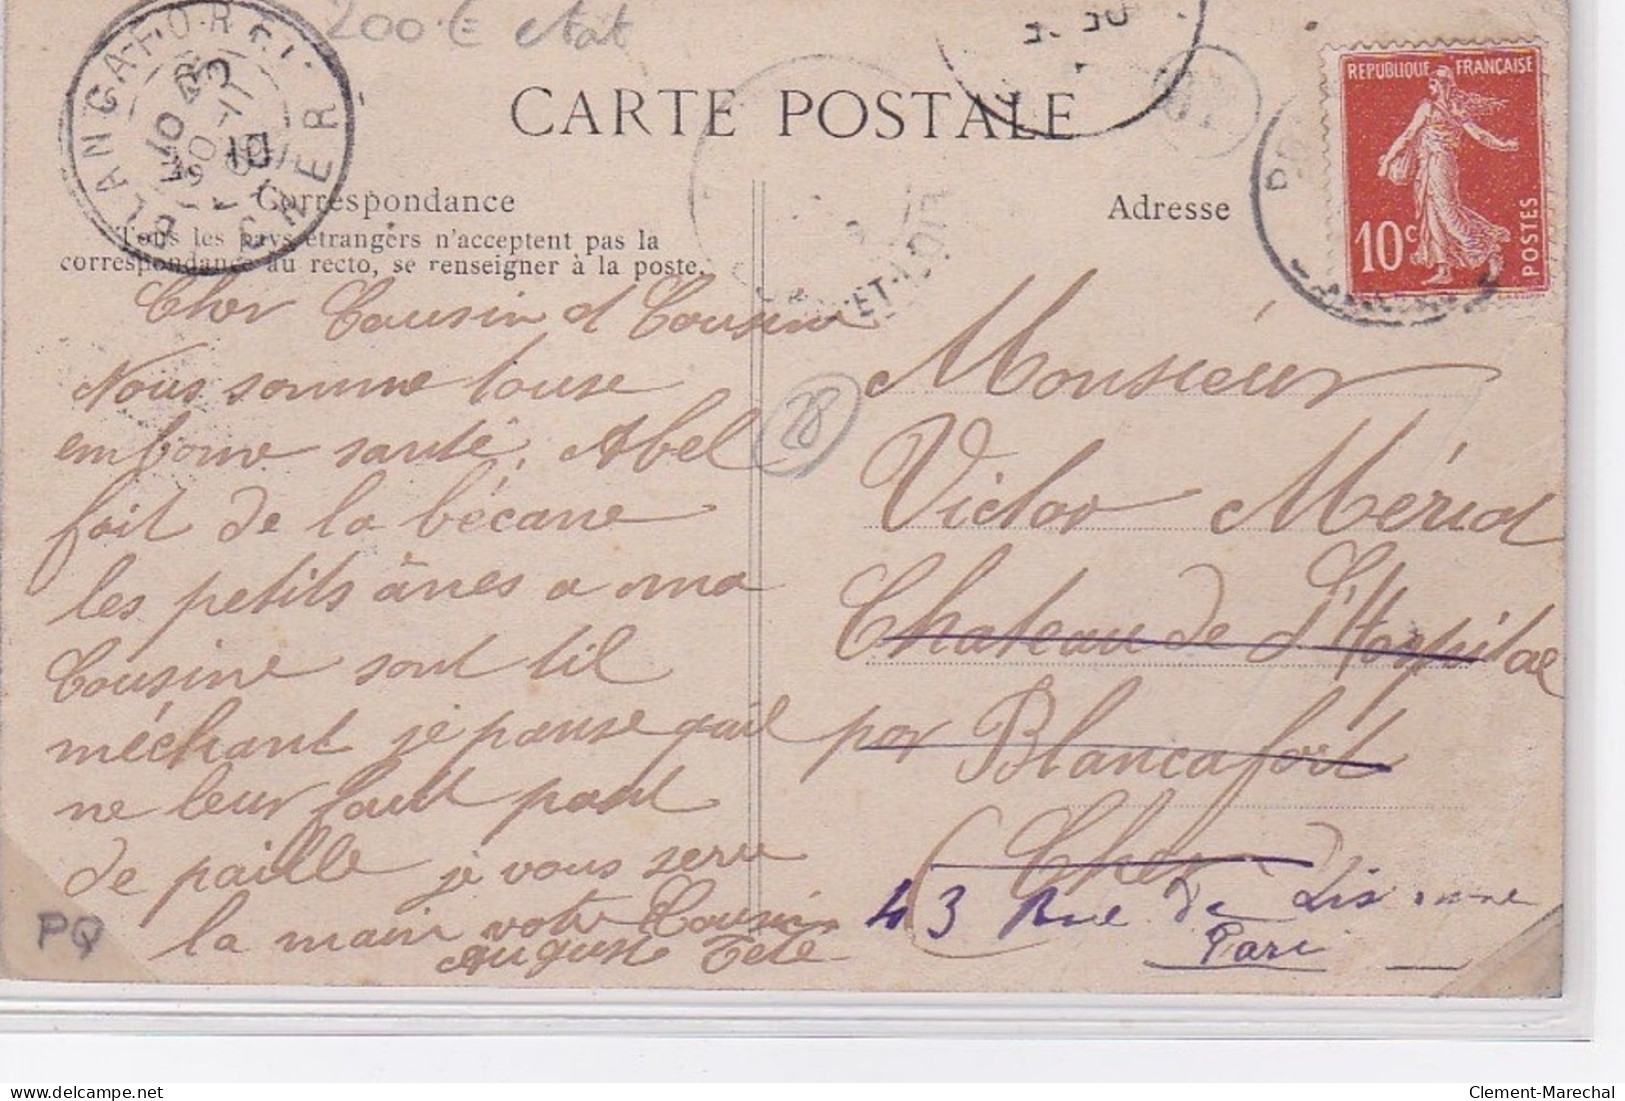 200 € état
BLANCAFORT
CHER
CARTE POSTALE
REPUBLIQUE FRANÇAISE
10c
POSTES
Correspondance
Adresse
Tous les pays étrangers n'acceptent pas la
correspondance au recto, se renseigner à la poste.
ET-LOIR
Cher Cousin et Cousine
Nous somme touse
en bonne santé, Abel
fait de la bécane
les petits ânes a ma
Cousine sont til
méchant je panse quil
ne leur faut pant
de paille je vous serre
la main votre Cousin
Auguste Tété
28
PQ
Monsieur
Victor Mériot
Chateau de L'Hospital
par Blancafort
Cher
43 Rue de
Pari
Clement-Marechal